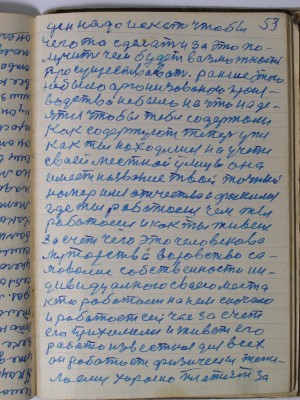 53
ден надо искать чтобы
чего то сделать и за это по-
лучить чем будет возможность
просуществоват. раньше этого
небыло организованно произ-
водства небыло на что наде-
ятся чтобы тебя содержали
Как содержут теперь уже
как ты находишся на учёти
своей местной улицы она
имеет название твой точный
номер имя отчество и фамилия
где ты работаеш чем
работаеш и как ты живеш
за счёт чего это человекова
воровство са-
собственность ин-
дивидуального своего места
кто работает на нем сначало
и работает сейчас за счёт
его и живет его
работа известная для всех
он работает физически
ему хорошо платят за